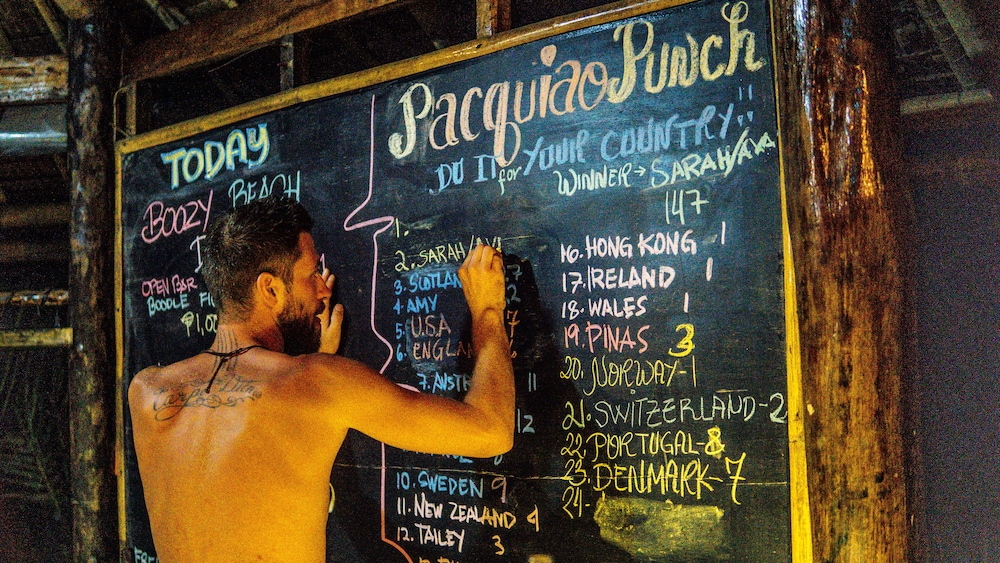 TODAY
BOOZY BEACH
OPEN BAR
BOODLE
₱1,0
PacquiaoPunch
DO IT for YOUR COUNTRY!!
WINNER → SARAH/AYA
147
1.
2. SARAH/AY
3. SCOTLAN 7
4. AMY 2
5. U.S.A 7
6. ENGLAN
7. AUST 11
12
8
10. SWEDEN 9
11. NEW ZEALAND 4
12. TAILEY 3
16. HONG KONG 1
17. IRELAND 1
18. WALES 1
19. PINAS 3
20. NORWAY-1
21. SWITZERLAND-2
22. PORTUGAL-8
23. DENMARK-7
24-